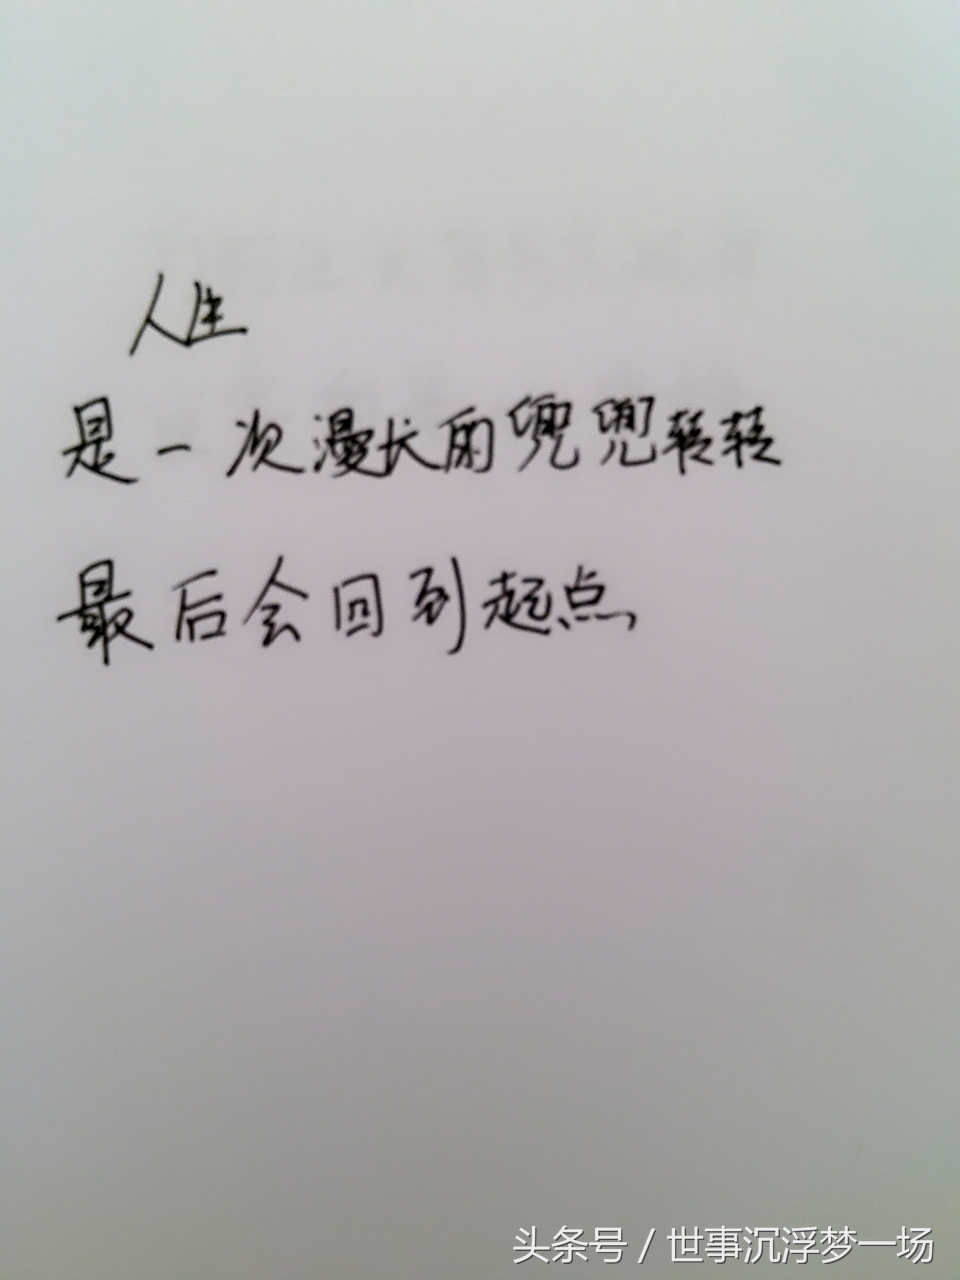 人生
是一次漫长的兜兜转转
最后会回到起点
头条号 / 世事沉浮梦一场